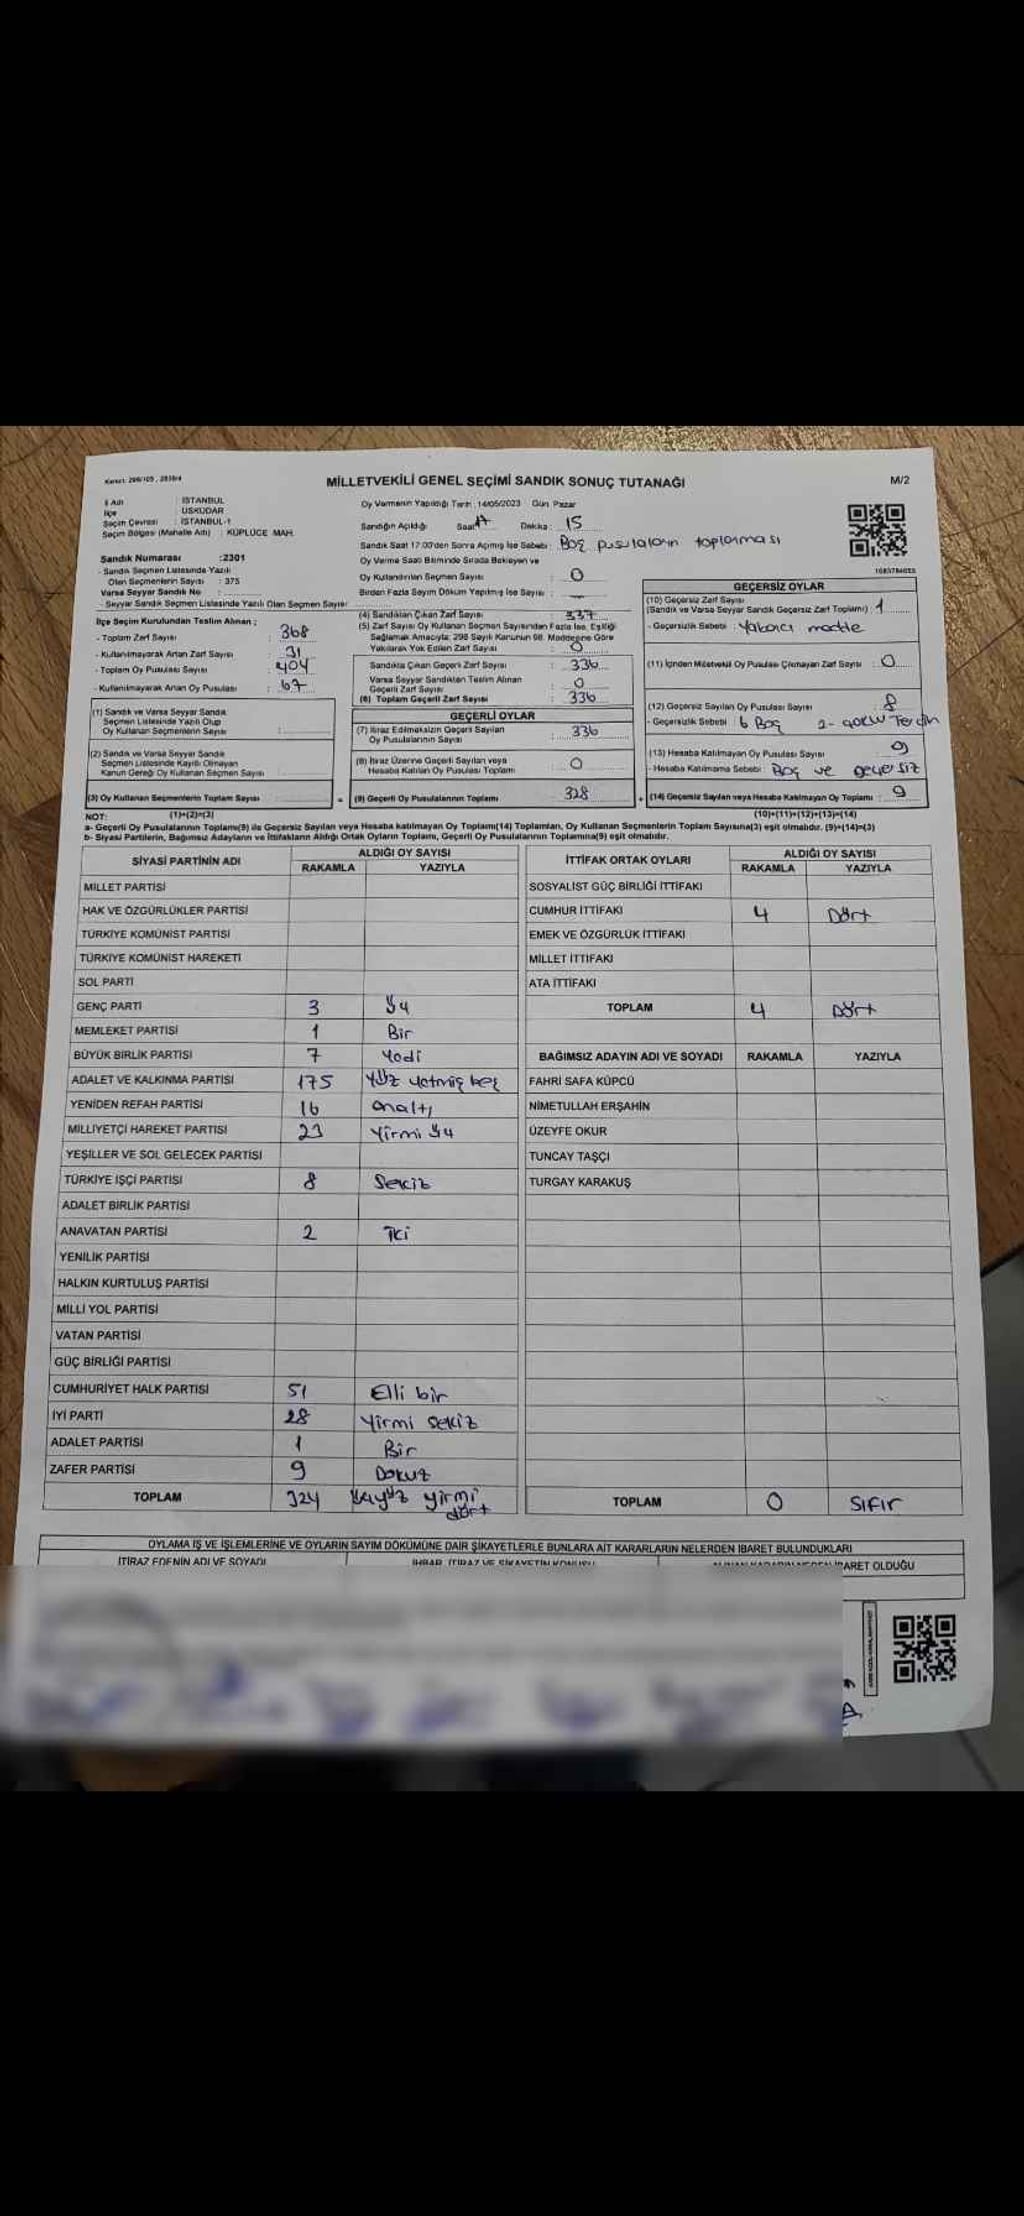 Kanun: 298/105, 2839/4
MİLLETVEKİLİ GENEL SEÇİMİ SANDIK SONUÇ TUTANAĞI
M/2
İl Adı : İSTANBUL
İlçe : ÜSKÜDAR
Seçim Çevresi : İSTANBUL-1
Seçim Bölgesi (Mahalle Adı) : KÜPLÜCE MAH.
Oy Vermenin Yapıldığı Tarih : 14/05/2023 Gün: Pazar
Sandığın Açıldığı Saat: 17 Dakika: 15
Sandık Saat 17.00'den Sonra Açılmış İse Sebebi: Boş pusulaların toplanması
Oy Verme Saati Bitiminde Sırada Bekleyen ve
Oy Kullandırılan Seçmen Sayısı : 0
Birden Fazla Sayım Döküm Yapılmış İse Sayısı : —
Sandık Numarası :2301
- Sandık Seçmen Listesinde Yazılı
Olan Seçmenlerin Sayısı : 375
Varsa Seyyar Sandık No :
- Seyyar Sandık Seçmen Listesinde Yazılı Olan Seçmen Sayısı:
İlçe Seçim Kurulundan Teslim Alınan ;
- Toplam Zarf Sayısı : 368
- Kullanılmayarak Artan Zarf Sayısı : 31
- Toplam Oy Pusulası Sayısı : 404
- Kullanılmayarak Artan Oy Pusulası : 67
(1) Sandık ve Varsa Seyyar Sandık
Seçmen Listesinde Yazılı Olup
Oy Kullanan Seçmenlerin Sayısı :
(2) Sandık ve Varsa Seyyar Sandık
Seçmen Listesinde Kayıtlı Olmayan
Kanun Gereği Oy Kullanan Seçmen Sayısı :
(3) Oy Kullanan Seçmenlerin Toplam Sayısı :
(1)+(2)=(3)
(4) Sandıktan Çıkan Zarf Sayısı : 337
(5) Zarf Sayısı Oy Kullanan Seçmen Sayısından Fazla İse, Eşitliği
Sağlamak Amacıyla; 298 Sayılı Kanunun 98. Maddesine Göre
Yakılarak Yok Edilen Zarf Sayısı : 0
Sandıkta Çıkan Geçerli Zarf Sayısı : 336
Varsa Seyyar Sandıkten Teslim Alınan
Geçerli Zarf Sayısı : 0
(6) Toplam Geçerli Zarf Sayısı : 336
GEÇERLİ OYLAR
(7) İtiraz Edilmeksizin Geçerli Sayılan
Oy Pusulalarının Sayısı : 336
(8) İtiraz Üzerine Geçerli Sayılan veya
Hesaba Katılan Oy Pusulası Toplamı : 0
(9) Geçerli Oy Pusulalarının Toplamı : 328
GEÇERSİZ OYLAR
(10) Geçersiz Zarf Sayısı
(Sandık ve Varsa Seyyar Sandık Geçersiz Zarf Toplamı) : 1
- Geçersizlik Sebebi : Yabancı madde
(11) İçinden Milletvekili Oy Pusulası Çıkmayan Zarf Sayısı : 0
(12) Geçersiz Sayılan Oy Pusulası Sayısı : 8
- Geçersizlik Sebebi : 6 Boş 2-
(13) Hesaba Katılmayan Oy Pusulası Sayısı : 9
- Hesaba Katılmama Sebebi: Boş ve geçersiz
(14) Geçersiz Sayılan veya Hesaba Katılmayan Oy Toplamı : 9
(10)+(11)+(12)+(13)=(14)
NOT:
a- Geçerli Oy Pusulalarının Toplamı(9) ile Geçersiz Sayılan veya Hesaba katılmayan Oy Toplamı(14) Toplamları, Oy Kullanan Seçmenlerin Toplam Sayısına(3) eşit olmalıdır. (9)+(14)=(3)
b- Siyasi Partilerin, Bağımsız Adayların ve İttifakların Aldığı Ortak Oyların Toplamı, Geçerli Oy Pusulalarının Toplamına(9) eşit olmalıdır.
SİYASİ PARTİNİN ADI ALDIĞI OY SAYISI
RAKAMLA YAZIYLA
MİLLET PARTİSİ
HAK VE ÖZGÜRLÜKLER PARTİSİ
TÜRKİYE KOMÜNİST PARTİSİ
TÜRKİYE KOMÜNİST HAREKETİ
SOL PARTİ
GENÇ PARTİ 3 Üç
MEMLEKET PARTİSİ 1 Bir
BÜYÜK BİRLİK PARTİSİ 7 Yedi
ADALET VE KALKINMA PARTİSİ 175 Yüz yetmiş beş
YENİDEN REFAH PARTİSİ 16 Onaltı
MİLLİYETÇİ HAREKET PARTİSİ 23 Yirmi üç
YEŞİLLER VE SOL GELECEK PARTİSİ
TÜRKİYE İŞÇİ PARTİSİ 8 Sekiz
ADALET BİRLİK PARTİSİ
ANAVATAN PARTİSİ 2 İki
YENİLİK PARTİSİ
HALKIN KURTULUŞ PARTİSİ
MİLLİ YOL PARTİSİ
VATAN PARTİSİ
GÜÇ BİRLİĞİ PARTİSİ
CUMHURİYET HALK PARTİSİ 51 Elli bir
İYİ PARTİ 28 Yirmi sekiz
ADALET PARTİSİ 1 Bir
ZAFER PARTİSİ 9 Dokuz
TOPLAM 324 Üçyüz yirmi dört
İTTİFAK ORTAK OYLARI ALDIĞI OY SAYISI
RAKAMLA YAZIYLA
SOSYALİST GÜÇ BİRLİĞİ İTTİFAKI
CUMHUR İTTİFAKI 4 Dört
EMEK VE ÖZGÜRLÜK İTTİFAKI
MİLLET İTTİFAKI
ATA İTTİFAKI
TOPLAM 4 Dört
BAĞIMSIZ ADAYIN ADI VE SOYADI RAKAMLA YAZIYLA
FAHRİ SAFA KÜPCÜ
NİMETULLAH ERŞAHİN
ÜZEYFE OKUR
TUNCAY TAŞÇI
TURGAY KARAKUŞ
TOPLAM 0 Sıfır
OYLAMA İŞ VE İŞLEMLERİNE VE OYLARIN SAYIM DÖKÜMÜNE DAİR ŞİKAYETLERLE BUNLARA AİT KARARLARIN NELERDEN İBARET BULUNDUKLARI
İTİRAZ EDENİN ADI VE SOYADI İHBAR, İTİRAZ VE ŞİKAYETİN KONUSU